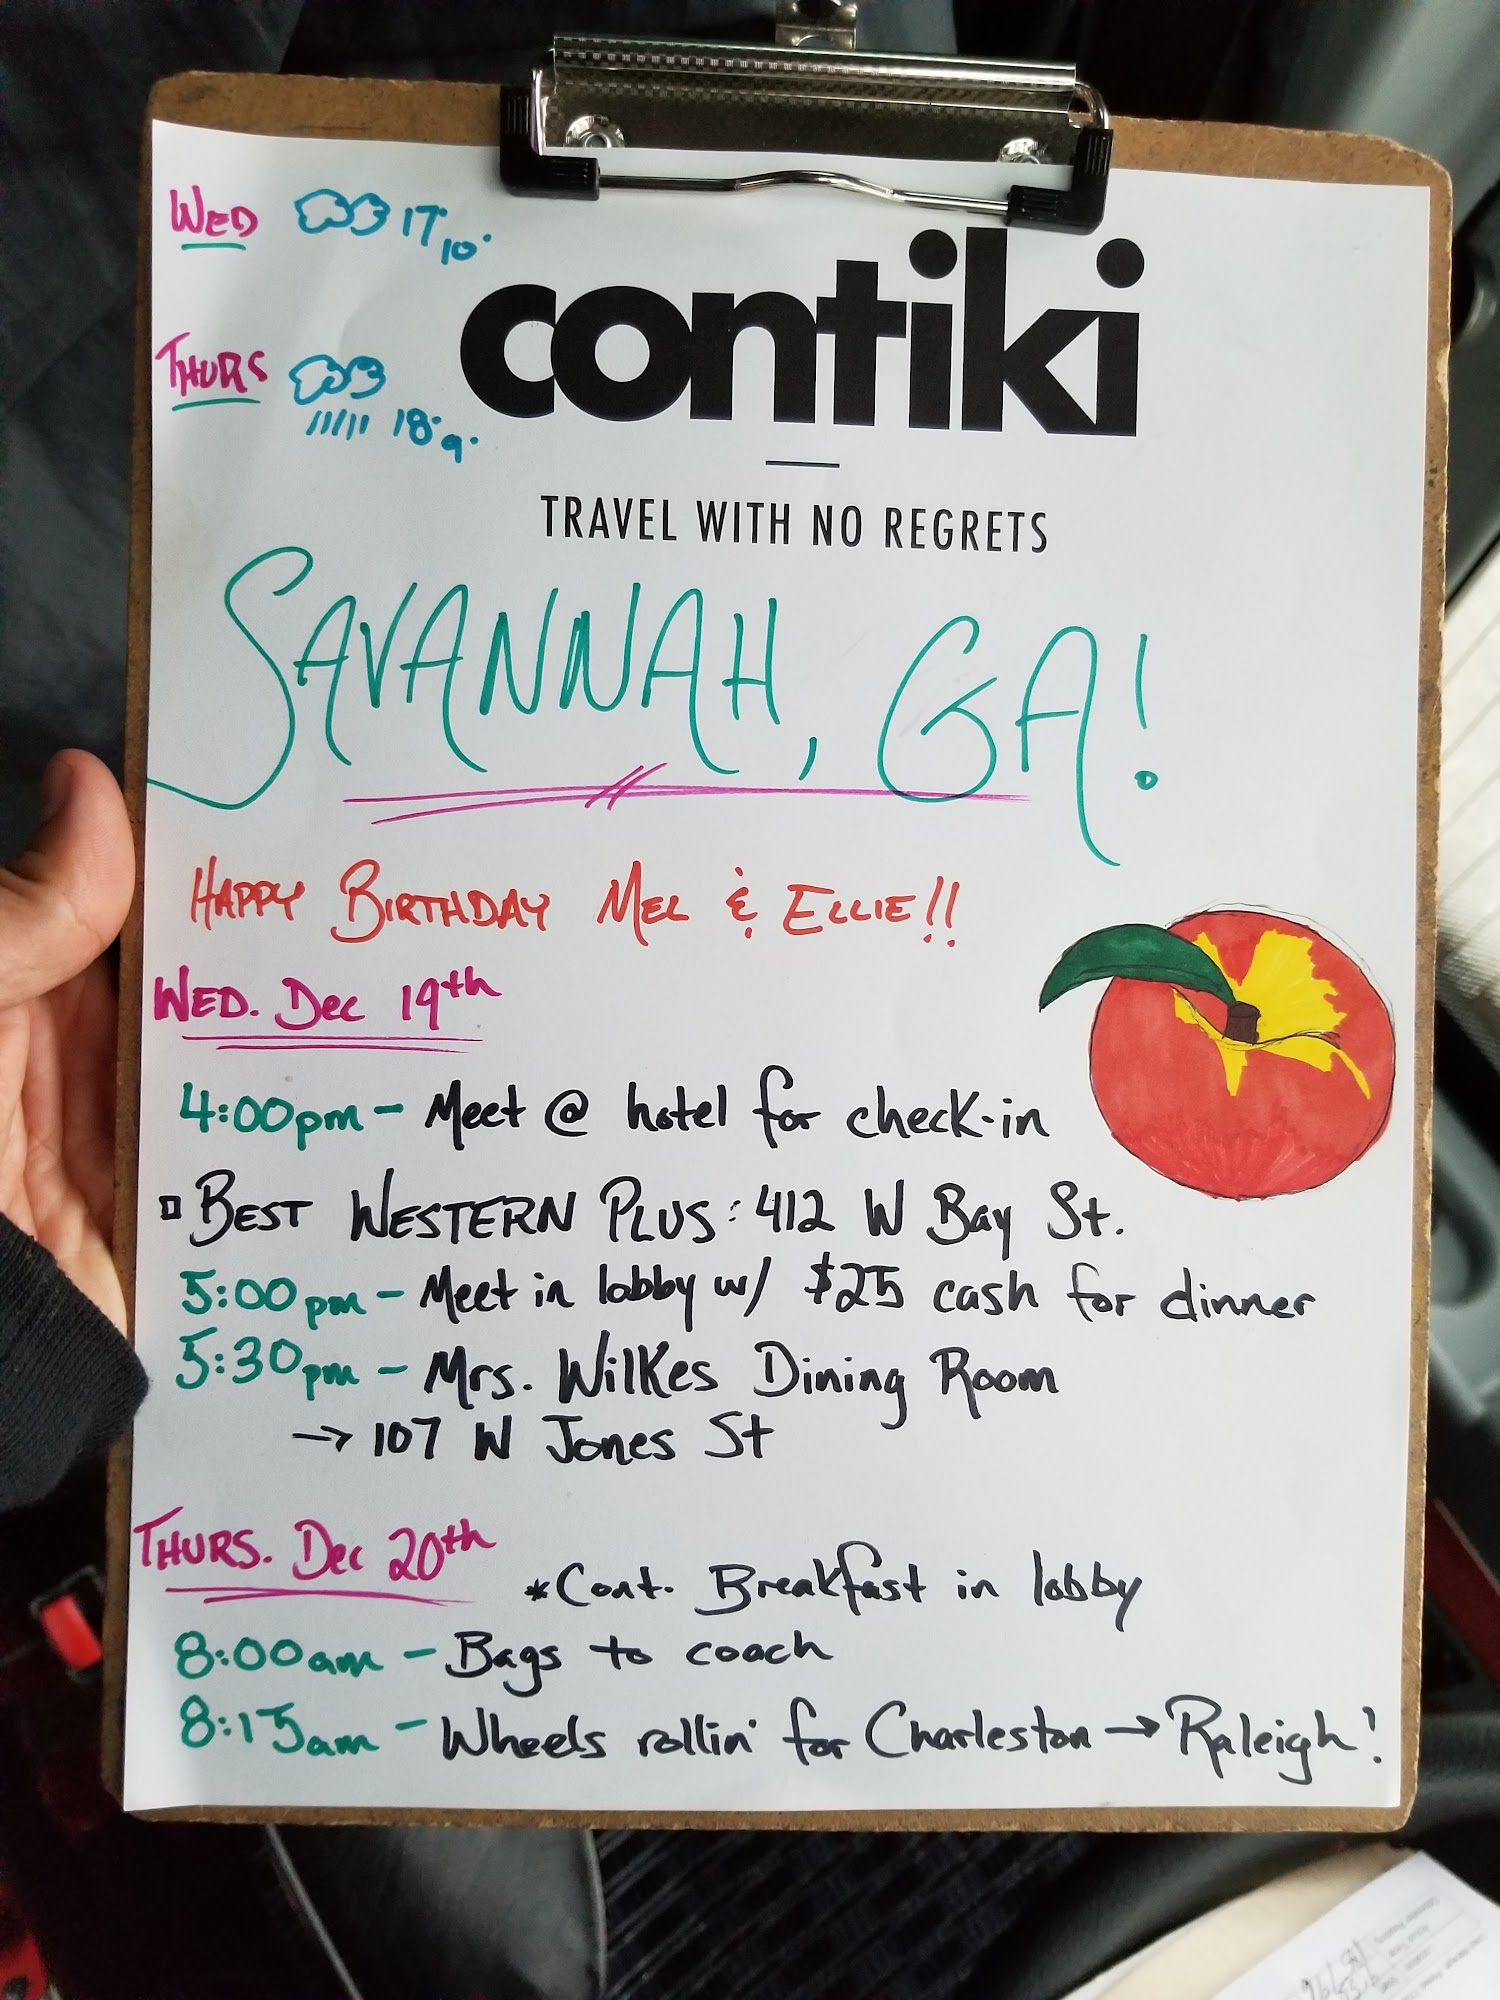 WED 17° 10°
THURS 18° 9°
contiki
TRAVEL WITH NO REGRETS
SAVANNAH, GA!
HAPPY BIRTHDAY MEL & ELLIE!!
WED. Dec 19th
4:00pm - Meet @ hotel for check-in
BEST WESTERN PLUS: 412 W Bay St.
5:00pm - Meet in lobby w/ $25 cash for dinner
5:30pm - Mrs. Wilkes Dining Room
→ 107 W Jones St
THURS. Dec 20th
*Cont. Breakfast in lobby
8:00am - Bags to coach
8:15am - Wheels rollin' for Charleston → Raleigh!